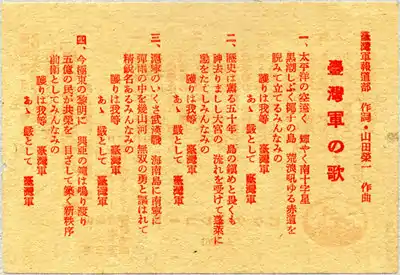 臺灣軍報道部 作詞・山田榮一 作曲
臺灣軍の歌
一、太平洋の空遠く 輝やく南十字星
黒潮しぶく椰子の島 荒浪吼ゆる赤道を
睨みて立てるみんなみの
護りは我等 臺灣軍
あゝ 厳として 臺灣軍
二、歴史は薫る五十年 島の鎮めと畏くも
神去りましし大宮の 流れを受けて蓬莱に
勲をたてしみんなみの
護りは我等 臺灣軍
あゝ 厳として 臺灣軍
三、滬寧のいくさ武漢戦 海南島に南寧に
弾雨の中を幾山河 無双の勇と謳はれて
精鋭名あるみんなみの
護りは我等 臺灣軍
あゝ 厳として 臺灣軍
四、今極東の黎明に 興亜の鐘は鳴り渡り
五億の民が共榮を 目ざして築く新秩序
前衛としてみんなみの
護りは我等 臺灣軍
あゝ 厳として 臺灣軍